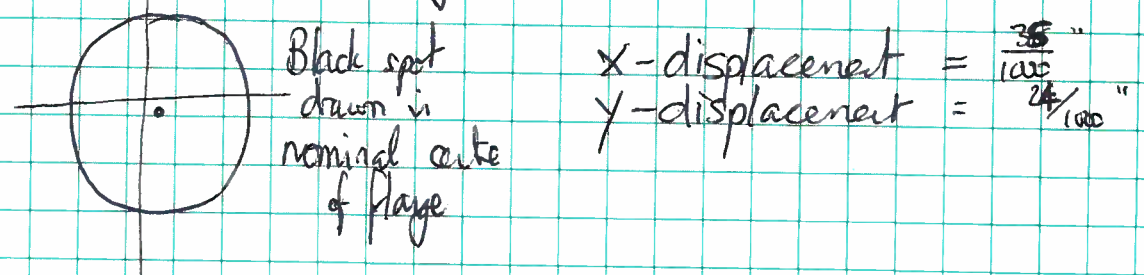 Black spot
drawn in
nominal centre
of flange
x-displacement = /1000"
y-displacement = 24/1000"